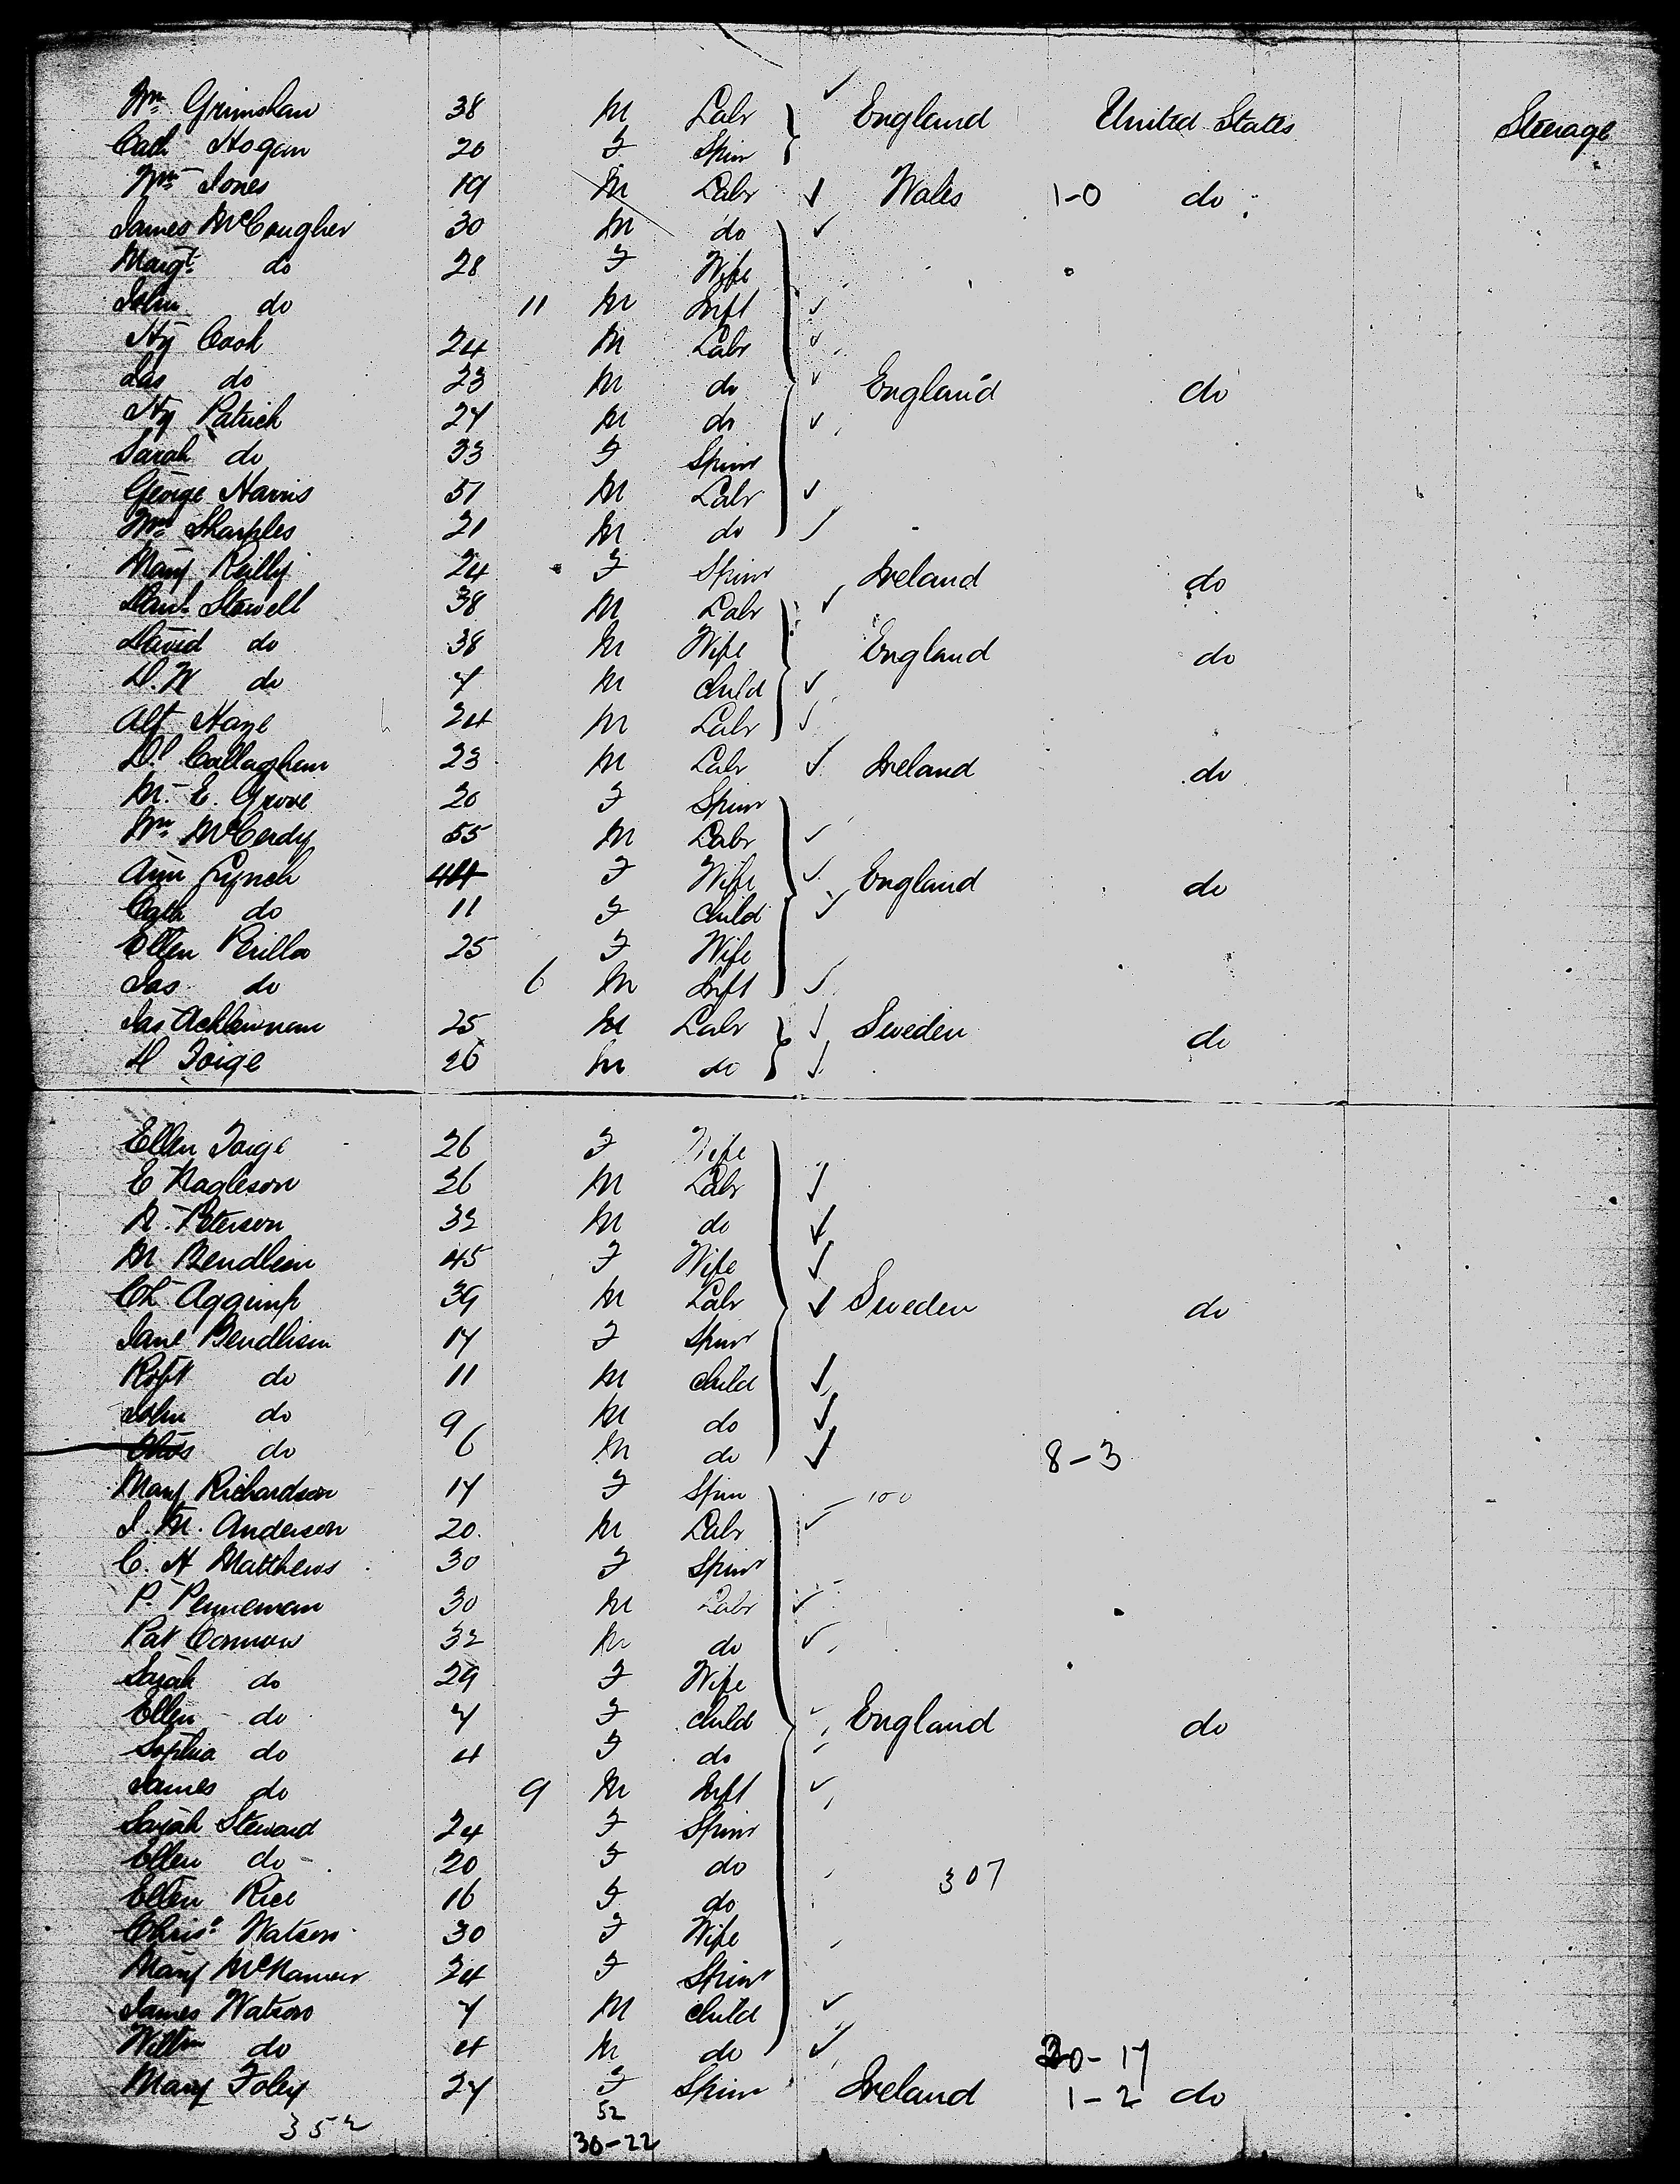 Wm Grimshaw 38 M Labr England United States Steerage
Cath Hogan 20 F Spinr
Wm Jones 19 M Labr Wales 1-0 do
James McCougher 30 M do
Margt do 28 F Wife
John do 11 M Inft
Hy Cook 24 M Labr
Jas do 23 M do England do
Hy Patrick 27 M do
Sarah do 33 F Spinr
George Harris 51 M Labr
Wm Sharples 21 M do
Mary Reilly 24 F Spinr Ireland do
Stowell 38 M Labr
David do 38 M Wife England do
D. W do 7 M Child
Alf Haye 24 M Labr
Dl Callaghan 23 M Labr Ireland do
M. E. Grove 20 F Spinr
Wm McCerdy 55 M Labr
Ann Lynch 44 F Wife England do
Cath do 11 F Child
Ellen Perilla 25 F Wife
Jas do 6 M Inft
Jas Acklewman 25 M Labr Sweden do
D Foige 26 M do
Ellen Foige 26 F Wife
E Nagleson 36 M Labr
A. Peterson 32 M do
M Bendlien 45 F Wife
Ch Aggimp 39 M Labr Sweden do
Jane Bendlien 17 F Spinr
Robt do 11 M Child
John do 9 M do
Chas do 6 M do 8-3
Mary Richardson 17 F Spin 100
J. M. Anderson 20 M Labr
C. H Matthews 30 F Spinr
P. Penneman 30 M Labr
Pat Connow 32 M do
Sarah do 29 F Wife
Ellen do 7 F Child England do
Sophia do 4 F do
James do 9 M Inft
Sarah Steward 24 F Spinr
Ellen do 20 F do 307
Ellen Rice 16 F do
Chris. Watson 30 F Wife
Mary McNamara 24 F Spinr
James Watson 7 M Child
Willm do 4 M do 20-17
Mary Foley 27 F Spinr Ireland 1-2 do
352 52
30-22